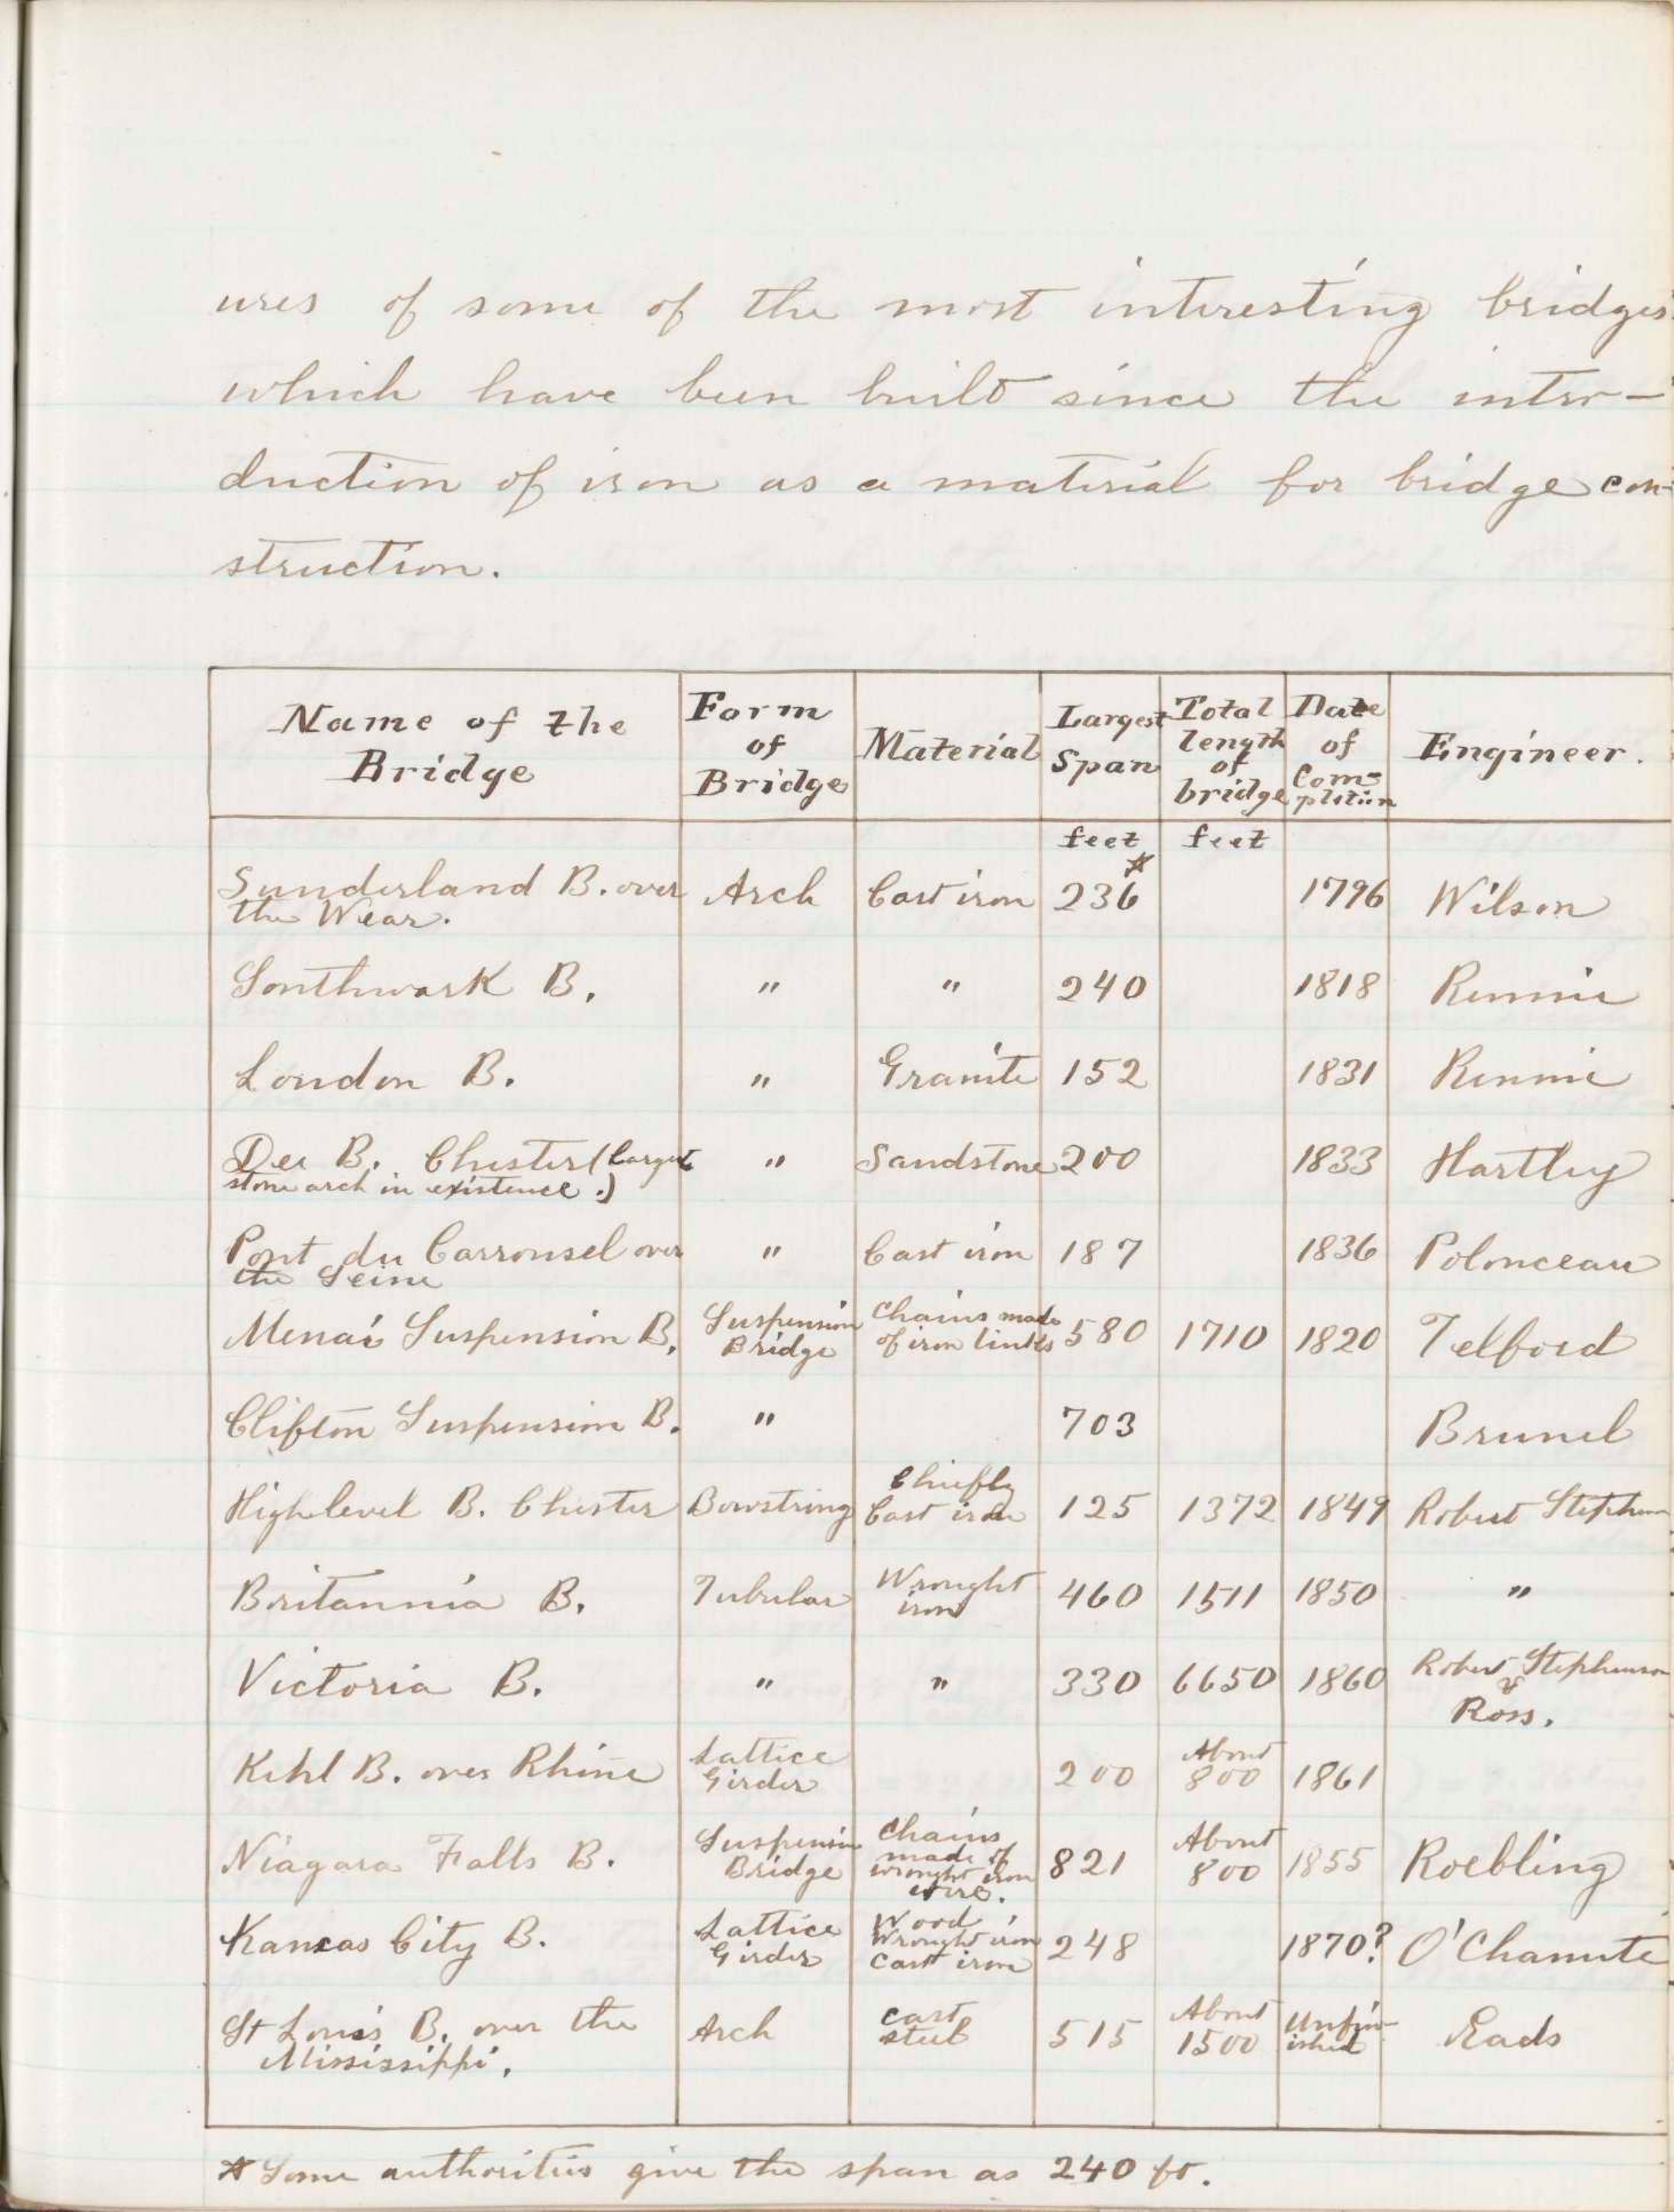 ures of some of the most interesting bridges
which have been built since the intro-
duction of iron as a material for bridge con-
struction.
Name of the Bridge | Form of Bridge | Material | Largest Span | Total length of bridge | Date of Com-pletion | Engineer.
feet | feet
Sunderland B. over the Wear. | Arch | Cast iron | 236* | | 1796 | Wilson
Southwark B. | " | " | 240 | | 1818 | Rennie
London B. | " | Granite | 152 | | 1831 | Rennie
Dee B. Chester (Largest stone arch in existence.) | " | Sandstone | 200 | | 1833 | Hartley
Pont du Carrousel over the Seine | " | Cast iron | 187 | | 1836 | Polonceau
Menai Suspension B. | Suspension Bridge | Chains made of iron links | 580 | 1710 | 1820 | Telford
Clifton Suspension B. | " | | 703 | | | Brunel
High level B. Chester | Bowstring | Chiefly Cast iron | 125 | 1372 | 1849 | Robert Stephenson
Britannia B. | Tubular | Wrought iron | 460 | 1511 | 1850 | "
Victoria B. | " | " | 330 | 6650 | 1860 | Robert Stephenson & Ross.
Kehl B. over Rhine | Lattice Girder | | 200 | About 800 | 1861
Niagara Falls B. | Suspension Bridge | Chains made of wrought iron wire. | 821 | About 800 | 1855 | Roebling
Kansas City B. | Lattice Girder | Wood Wrought iron Cast iron | 248 | | 1870? | O'Chanute
St Louis B. over the Mississippi. | Arch | cast steel | 515 | About 1500 | Unfin-ished | Eads
* Some authorities give the span as 240 ft.